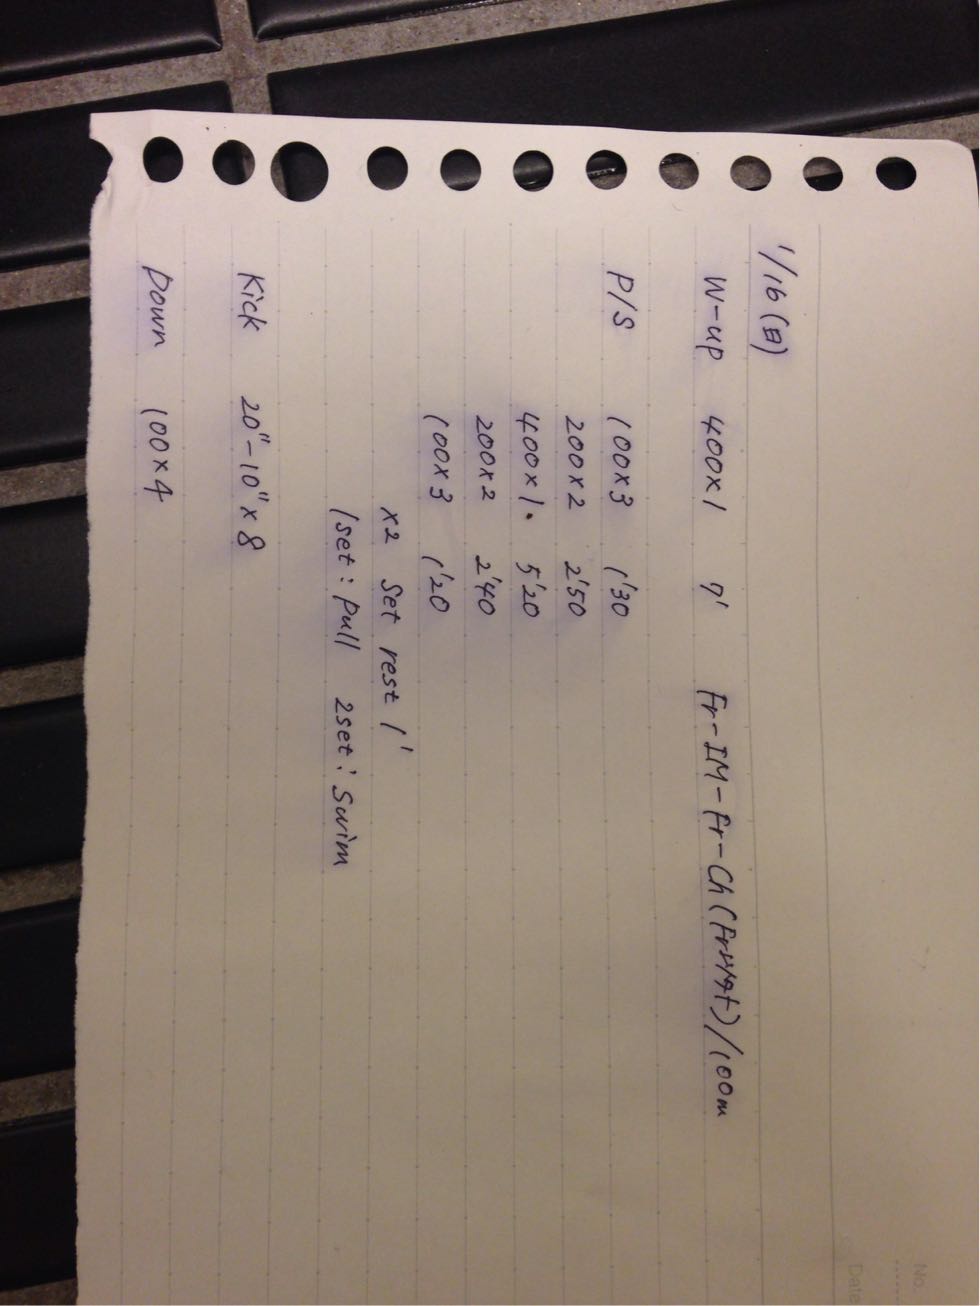 No.
Date
1/16(日)
W-up 400×1 7' Fr-IM-Fr-Ch( )/100m
P/S 100×3 1'30
200×2 2'50
400×1. 5'20
200×2 2'40
100×3 1'20
×2 Set rest 1'
1set: Pull 2set: Swim
Kick 20"-10"×8
Down 100×4